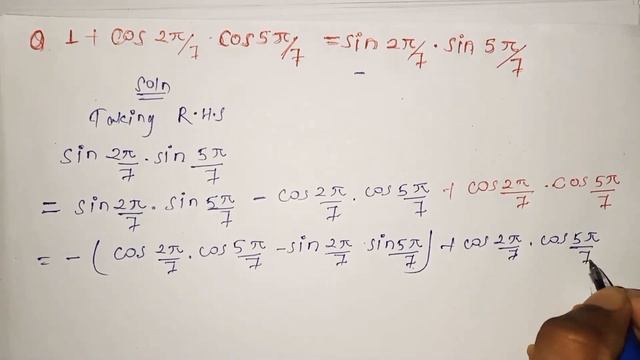 Q 1 + cos 2π/7 · cos 5π/7 = sin 2π/7 · sin 5π/7
Soln
Taking R.H.S
sin 2π/7 · sin 5π/7
= sin 2π/7 · sin 5π/7 - cos 2π/7 · cos 5π/7 + cos 2π/7 · cos 5π/7
= - ( cos 2π/7 · cos 5π/7 - sin 2π/7 · sin 5π/7 ) + cos 2π/7 · cos 5π/7